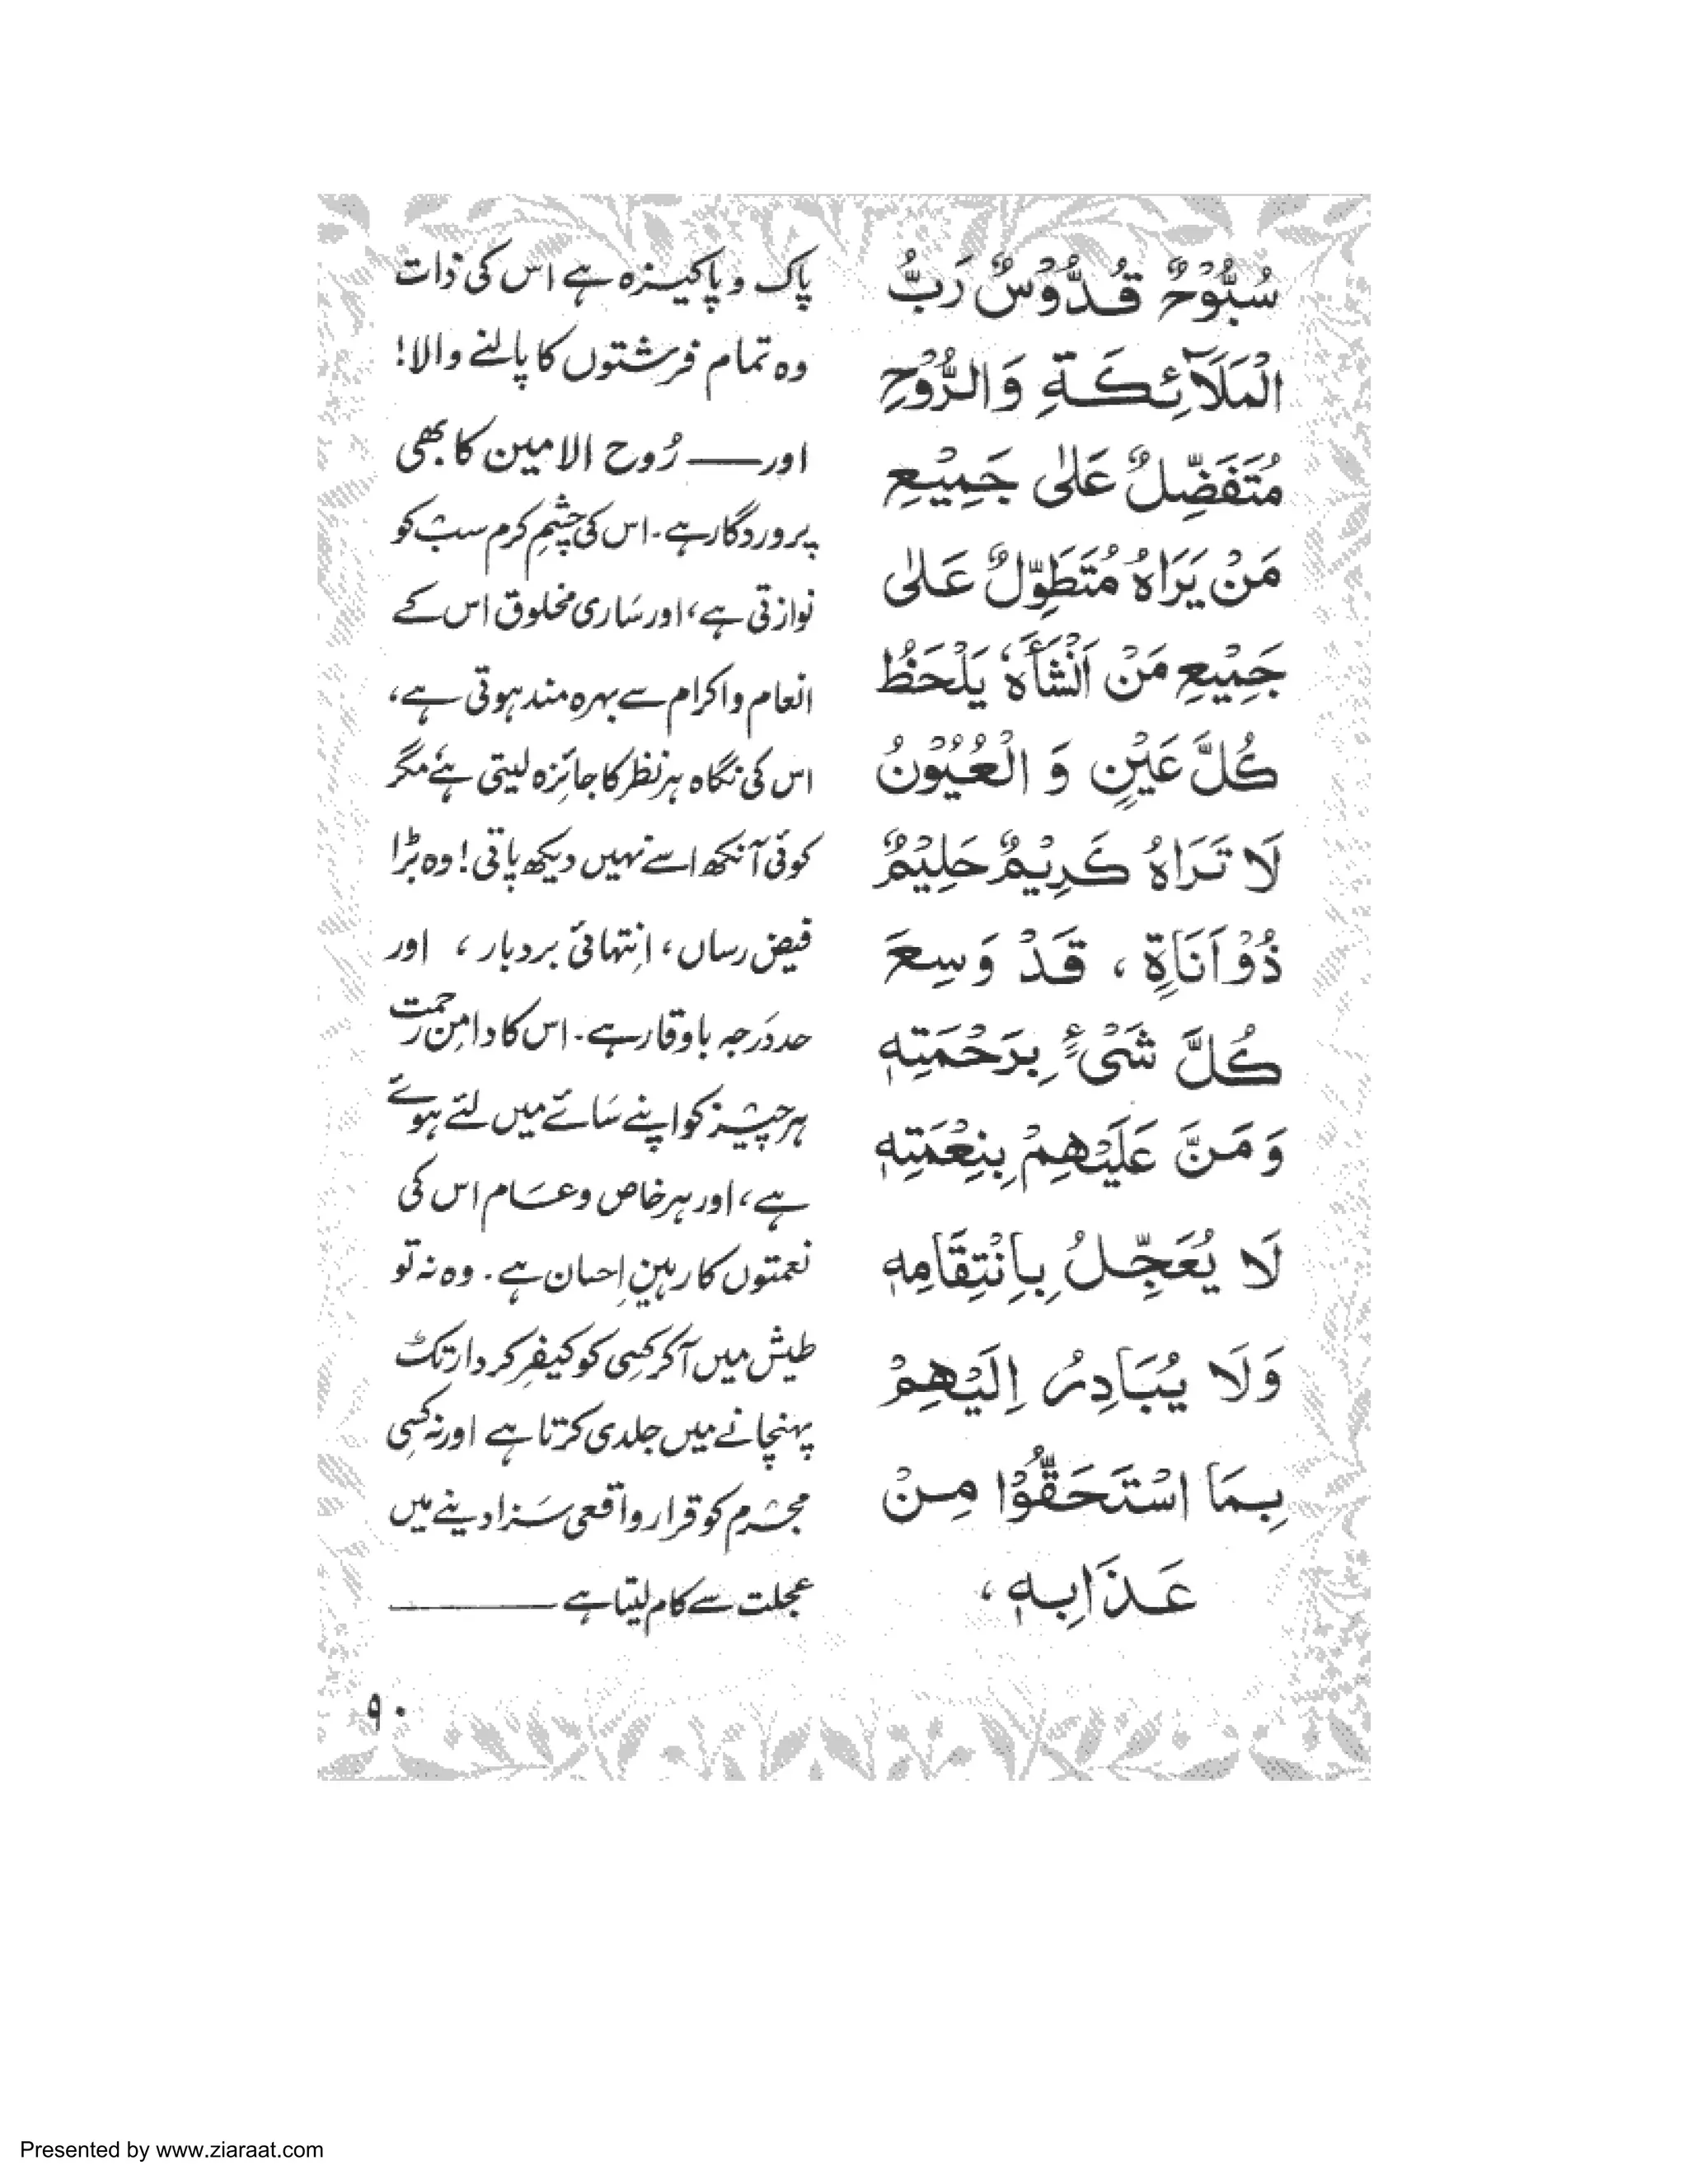 سُبُّوْحٌ قُدُّوْسٌ رَبُّ
الْمَلَآئِكَةِ وَالرُّوْحِ
مُتَفَضِّلٌ عَلٰى جَمِيْعِ
مَنْ يَرَاهُ مُتَطَوِّلٌ عَلٰى
جَمِيْعِ مَنْ اَنْشَأَهٗ يَلْحَظُ
كُلَّ عَيْنٍ وَ الْعُيُوْنُ
لَا تَرَاهُ كَرِيْمٌ حَلِيْمٌ
ذُوْ اَنَاةٍ ، قَدْ وَسِعَ
كُلَّ شَىْءٍ بِرَحْمَتِهٖ
وَمَنَّ عَلَيْهِمْ بِنِعْمَتِهٖ
لَا يُعَجِّلُ بِاِنْتِقَامِهٖ
وَلَا يُبَادِرُ اِلَيْهِمْ
بِمَا اسْتَحَقُّوْا مِنْ
عَذَابِهٖ ،
پاک و پاکیزہ ہے اس کی ذات
وہ تمام فرشتوں کا پالنے والا!
اور — رُوح الامین کا بھی
پروردگار ہے۔ اس کی چشمِ کرم سب کو
نوازتی ہے، اور سَاری مخلوق اس کے
انعام و اکرام سے بہرہ مند ہوتی ہے،
اس کی نگاہ ہر نظر کا جائزہ لیتی ہے مگر
کوئی آنکھ اسے نہیں دیکھ پاتی! وہ بڑا
فیض رساں، اِنتہائی بردبار ، اور
حد دَرجہ باوقار ہے۔ اس کا دامنِ رحمت
ہر چیز کو اپنے سَائے میں لئے ہوئے
ہے، اور ہر خاص و عَام اس کی
نعمتوں کا رہینِ اِحسان ہے۔ وہ نہ تو
طیش میں آکر کسِی کو کیفرِ کردار تک
پہنچانے میں جلدی کرتا ہے اور نہ کسِی
مجرم کو قرار واقعی سَزا دینے میں
عجلت سے کام لیتا ہے ———
۹۰
Presented by www.ziaraat.com